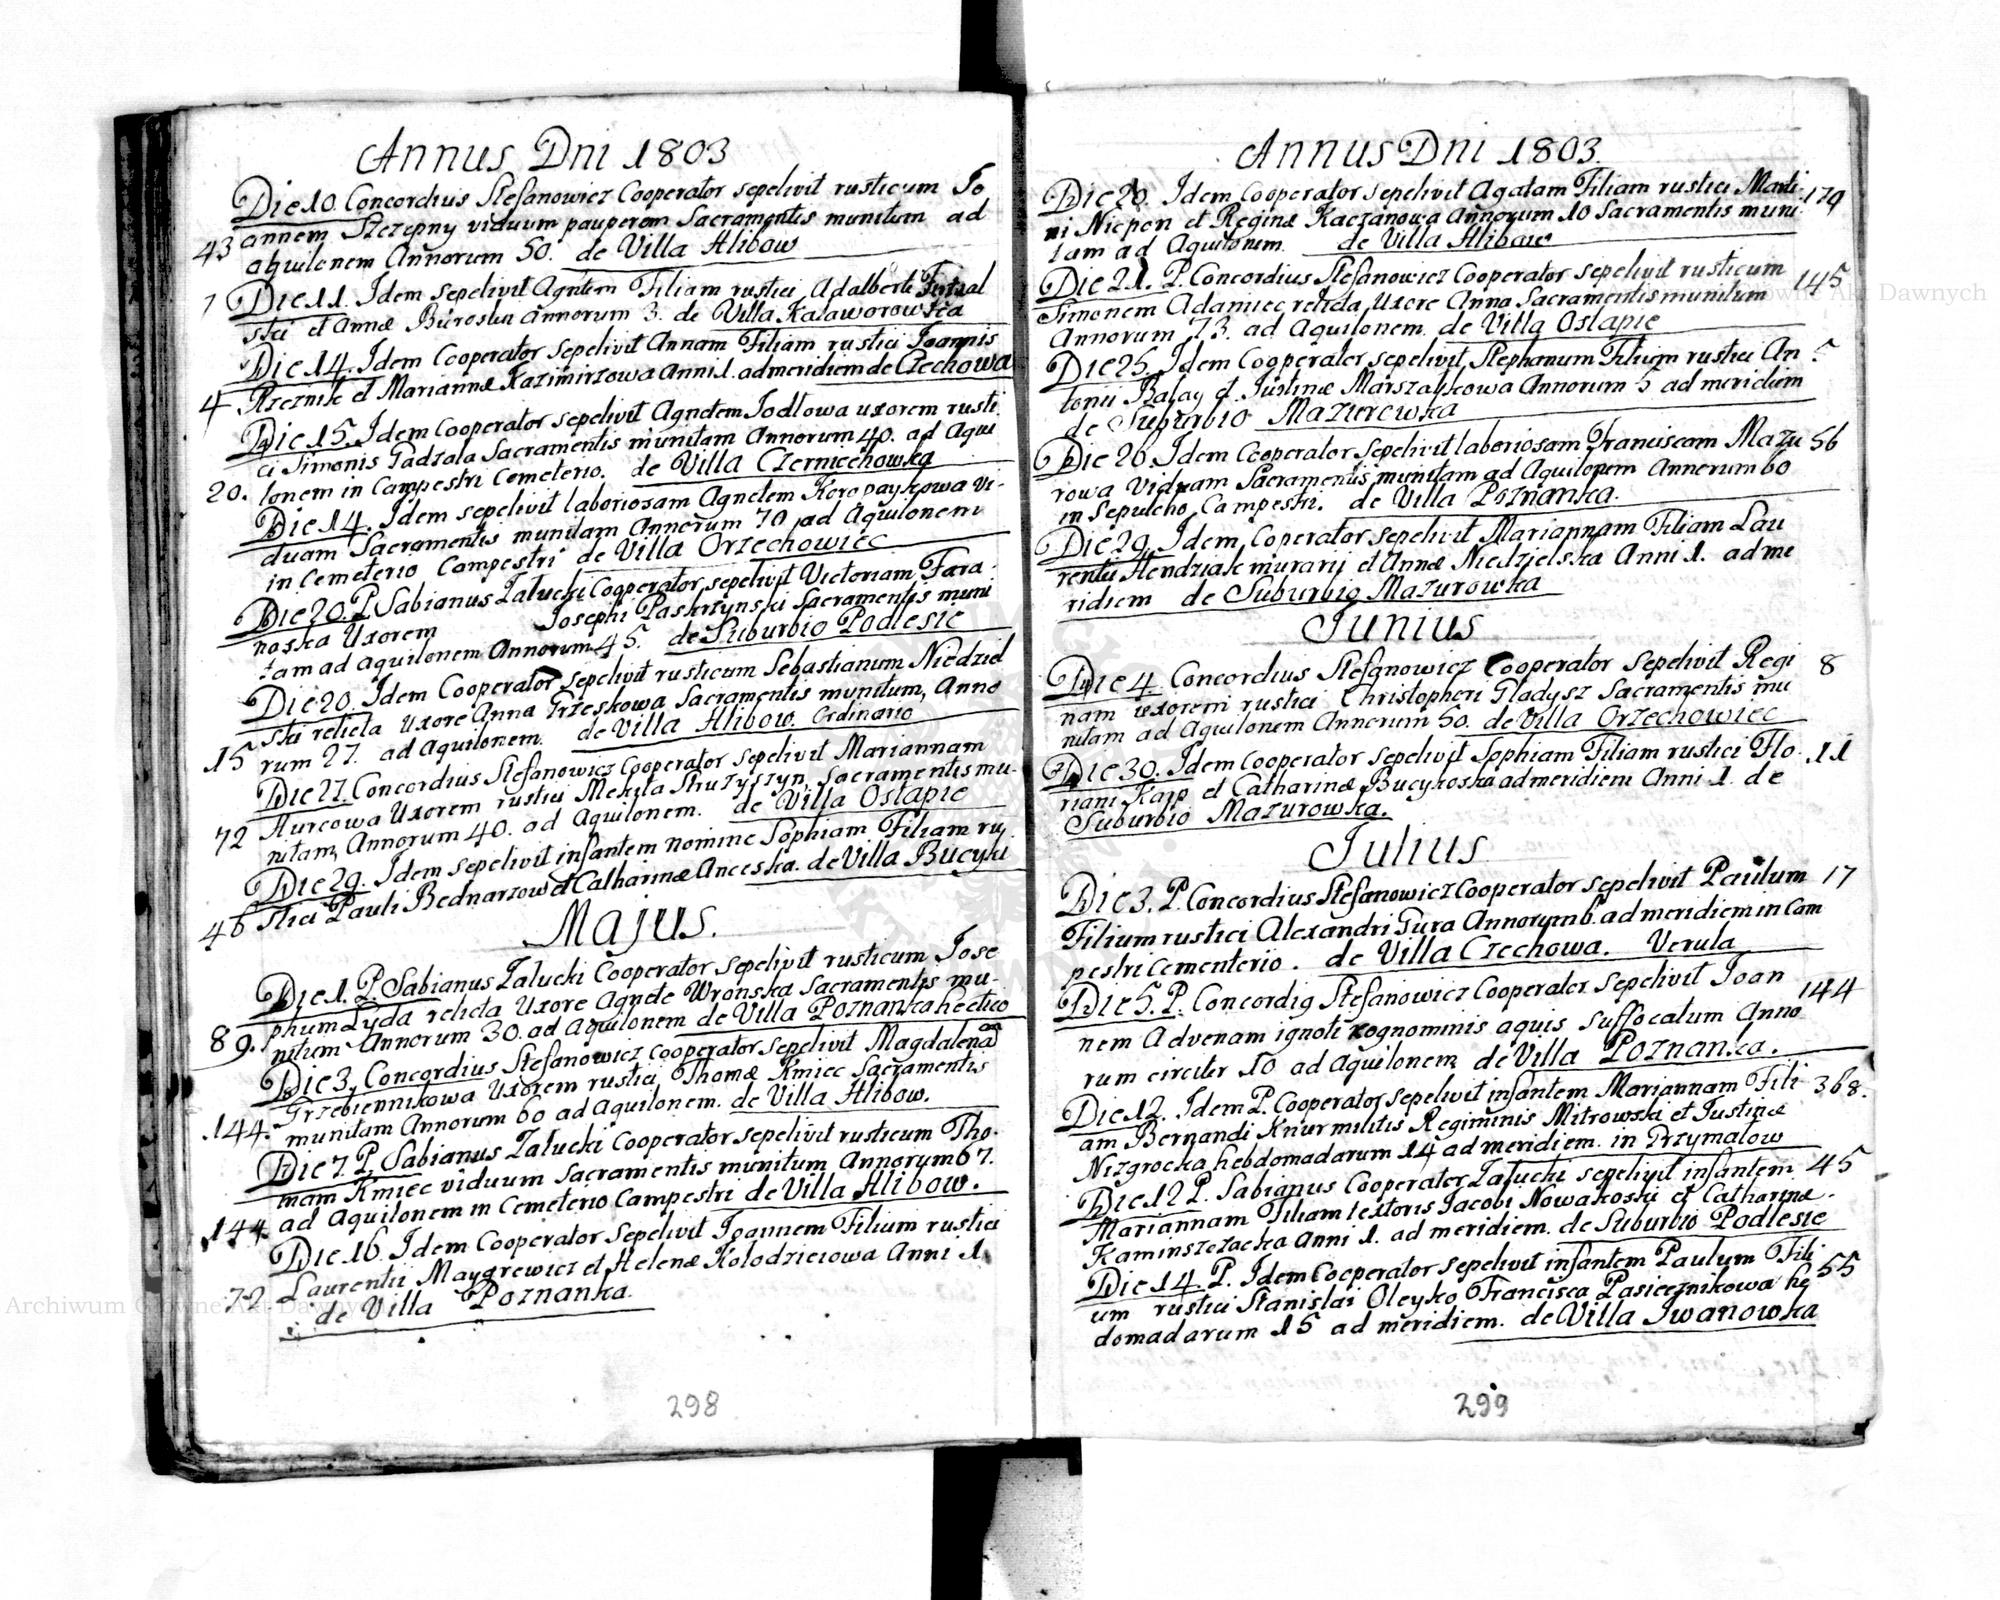 Annus Dni 1803
Die 10. Concordius Stefanowicz Cooperator sepelivit rusticum Jo
annem Szczepny viduum pauperem Sacramentis munitum ad
43 aquilonem Annorum 50. de Villa Hlibow
7 Die 11. Idem sepelivit Agnetem Filiam rustici Adalberti
ski et Annæ Annorum 3. de Villa Kaławorowska
Die 14. Idem Cooperator Sepelivit Annam Filiam rustici Joannis
4 Rzeznik et Mariannæ Kazimirzowa Anni 1. ad meridiem de Czechowa
Die 15. Idem Cooperator sepelivit Agnetem Jodłowa uxorem rusti
ci Simonis Gadzala Sacramentis munitam Annorum 40. ad Aqui
20. lonem in Campestri Cemeterio. de Villa Czerniechowka
Die 14. Idem sepelivit laboriosam Agnetem Koropaykowa vi-
duam Sacramentis munitam Annorum 70 ad Aquilonem
in Cemeterio Campestri de Villa Orzechowiec
Die 20. P. Sabianus Załucki Cooperator sepelivit Victoriam Fara
noska Uxorem Josephi Paskrzynski Sacramentis muni
tam ad Aquilonem Annorum 45. de Suburbio Podlesie
Die 20. Idem Cooperator sepelivit rusticum Sebastianum Niedziel
ski relicta Uxore Anna Grzeskowa Sacramentis munitum, Anno
15 rum 27. ad Aquilonem. de Villa Hlibow. Ordinario
Die 27. Concordius Stefanowicz Cooperator sepelivit Mariannam
Hurcowa Uxorem rustici Mekita Struzyszyn, Sacramentis mu-
72 nitam, Annorum 40. ad Aquilonem. de Villa Ostapie
Die 29. Idem sepelivit infantem nomine Sophiam Filiam ru
46 stici Pauli Bednarzow et Catharinæ Anceska. de Villa Bucyki
Majus.
Die 1. P. Sabianus Załucki Cooperator sepelivit rusticum Jose
phum Lyda relicta Uxore Agnete Wronska Sacramentis mu-
89. nitum Annorum 30. ad Aquilonem de Villa Poznanka hectico
Die 3. Concordius Stefanowicz Cooperator sepelivit Magdalenam
Grzebiennikowa Uxorem rustici Thomæ Kmiec Sacramentis
144. munitam Annorum 60 ad Aquilonem. de Villa Hlibow.
Die 7. P. Sabianus Załucki Cooperator sepelivit rusticum Tho-
mam Kmiec viduum Sacramentis munitum Annorum 67.
144. ad Aquilonem in Cemeterio Campestri de Villa Hlibow.
Die 16. Idem Cooperator Sepelivit Joannem Filium rustici
72 Laurentii Maygrewicz et Helenæ Kolodzieiowa Anni 1.
de Villa Poznanka.
298
Annus Dni 1803.
Die 20. Idem Cooperator sepelivit Agatam Filiam rustici Marti- 179
ni Niepon et Reginæ Kaczanowa Annorum 10 Sacramentis muni-
tam ad Aquilonem. de Villa Hlibow
Die 21. P. Concordius Stefanowicz Cooperator sepelivit rusticum 145
Simonem Adamiec relicta Uxore Anna Sacramentis munitum
Annorum 73. ad Aquilonem. de Villa Ostapie
Die 25. Idem Cooperator sepelivit Stephanum Filium rustici An 5
tonii Bałay et Justinæ Marszałkowa Annorum 5 ad meridiem
de Suburbio Mazurowka
Die 26. Idem Cooperator Sepelivit laboriosam Franciscam Mazu 56
rowa Viduam Sacramentis munitam ad Aquilonem Annorum 60
in Sepulcho Campestri. de Villa Poznanka.
Die 29. Idem Coperator sepelivit Mariannam Filiam Lau
rentii Hendziak murarij et Annæ Niedzielska Anni 1. ad me
ridiem de Suburbio Mazurowka
Junius
Die 4. Concordius Stefanowicz Cooperator sepelivit Regi 8
nam uxorem rustici Christopheri Gladysz Sacramentis mu
nitam ad Aquilonem Annorum 50. de Villa Orzechowiec
Die 30. Idem Cooperator sepelivit Sophiam Filiam rustici Flo- 11
riani Kapp et Catharinæ Bucykoska ad meridiem Anni 1. de
Suburbio Mazurowka.
Julius
Die 3. P. Concordius Stefanowicz Cooperator sepelivit Paulum 17
Filium rustici Alexandri Gura Annorum 6. ad meridiem in Cam
pestri Cementerio. de Villa Czechowa. Verula
Die 5. P. Concordig Stefanowicz Cooperator sepelivit Joan 144
nem Advenam ignoti cognominis aquis suffocatum Anno
rum circiter 50 ad Aquilonem de Villa Poznanka.
Die 12. Idem P. Cooperator sepelivit infantem Mariannam Fili 368.
am Bernandi Knur militis Regiminis Mitrowski et Justinæ
Nizgrocka hebdomadarum 14 ad meridiem. in Grzymałow
Die 12 P. Sabianus Cooperator Załucki sepelivit infantem 45
Mariannam Filiam textoris Jacobi Nowakoski et Catharinæ
Kaminszczacka Anni 1. ad meridiem. de Suburbio Podlesie
Die 14. P. Idem Cooperator sepelivit infantem Paulum Fili 55
um rustici Stanislai Oleyko Francisca Pasiecznikowa he
domadarum 15 ad meridiem. de Villa Iwanowka
299
Archiwum Główne Akt Dawnych